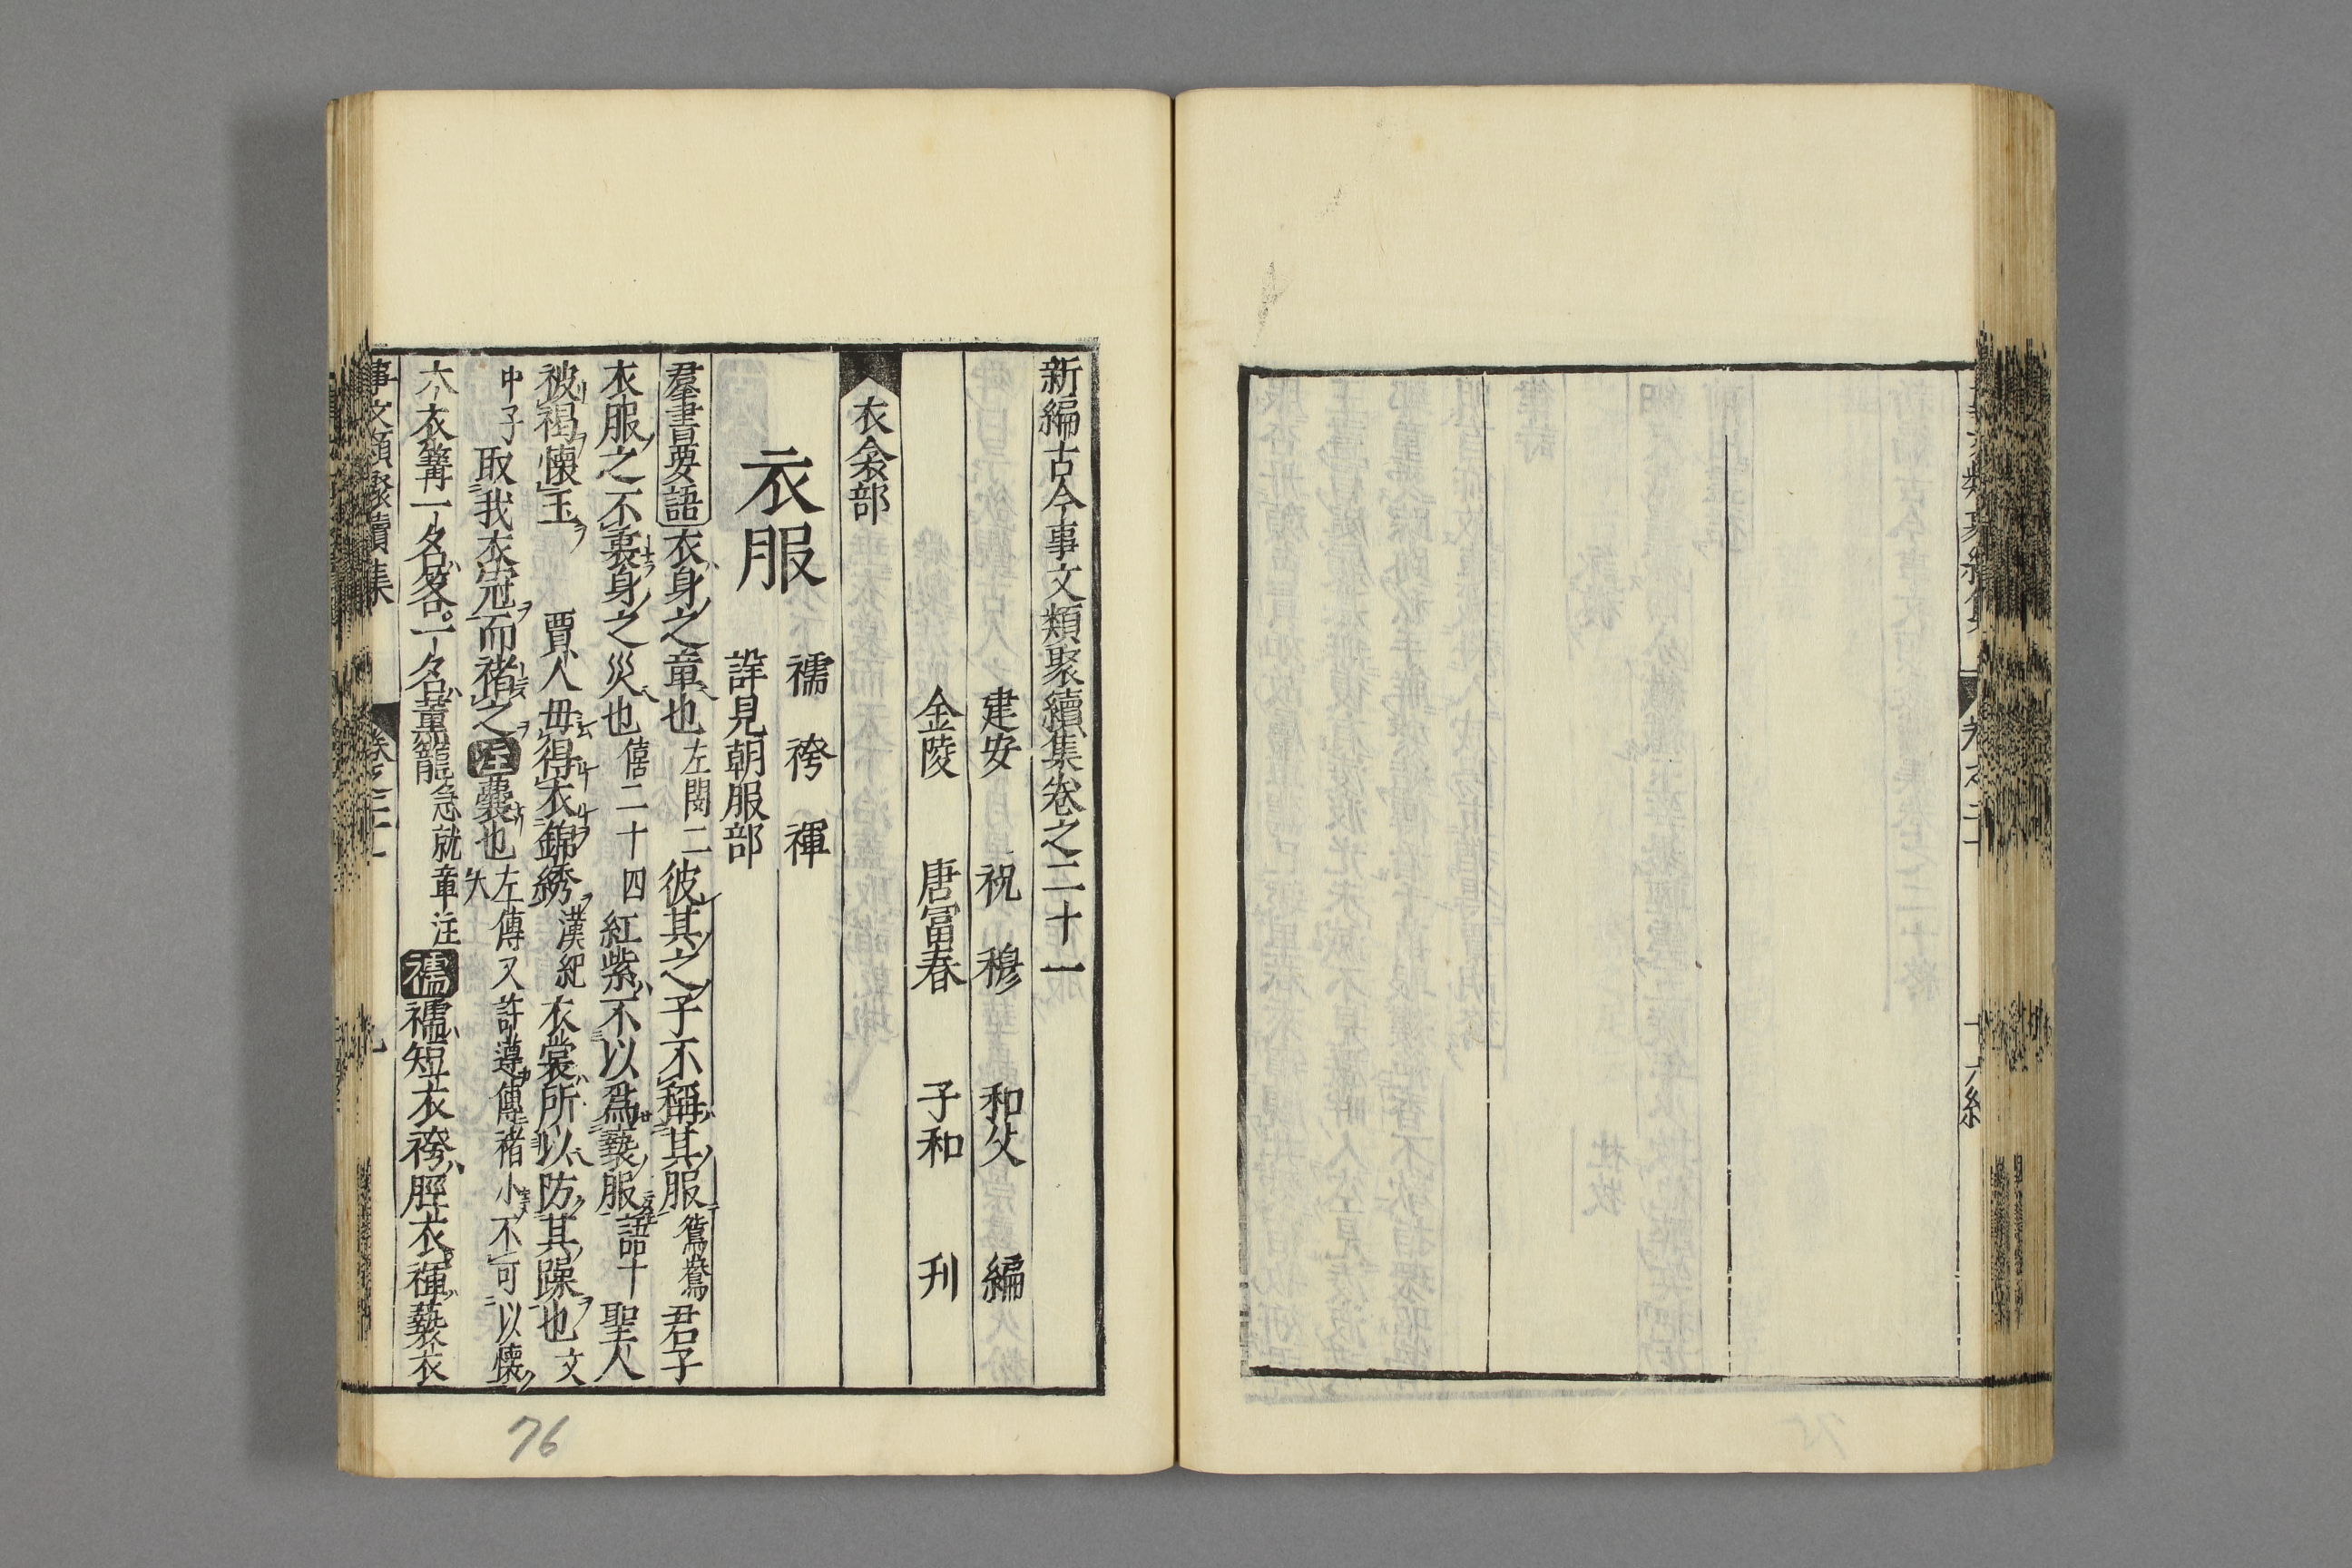 新編古今事文類聚續集卷之二十一
建安　祝　穆　和父　編
金陵　唐冨春　子和　刋
衣衾部
衣服
襦　袴　褌
詳見朝服部
羣書要語衣身之章也左閔二彼其之子不稱其服鴛鴦君子
衣服之不衷身之災也僖二十四紅紫不以爲褻服語十聖人
被褐懷玉　賈人毋得衣錦綉漢紀衣裳所以防其躁也文
中子取我衣冠而褚之注囊也左傳又許遵傳褚小不可以懷大
六衣篝一名笿一名薰籠急就章注襦襦短衣袴脛衣褌褻衣
事文類聚續集　卷之二十一
76